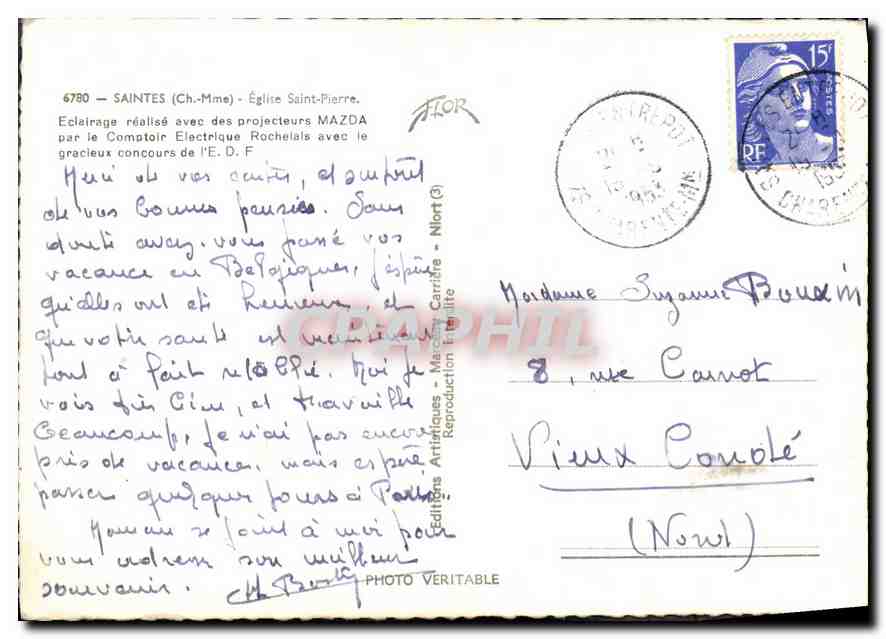 6780 — SAINTES (Ch.-Mme) - Église Saint-Pierre.
Eclairage réalisé avec des projecteurs MAZDA
par le Comptoir Electrique Rochelais avec le
gracieux concours de l'E. D. F
FLOR
Merci de vos cartes, et surtout
de vos bonnes pensées. Sans
doute avez-vous passé vos
vacance en Belgique, j'espère
qu'elles ont été heureuse, et
que votre santé est maintenant
tout à fait rétablie. Moi je
vais très bien, et travaille
beaucoup, je n'ai pas encore
pris de vacances, mais espère
passer quelque jours à Paris.
Maman se joint à moi pour
vous adresser son meilleur
souvenir.
PHOTO VERITABLE
Editions Artistiques - Marcel Carrière - Niort (3)
Reproduction Interdite
CPAPHIL
ENTREPOT
1953
15F
POSTES
RF
Madame Suzanne Bouxin
8, rue Carnot
Vieux Condé
(Nord)